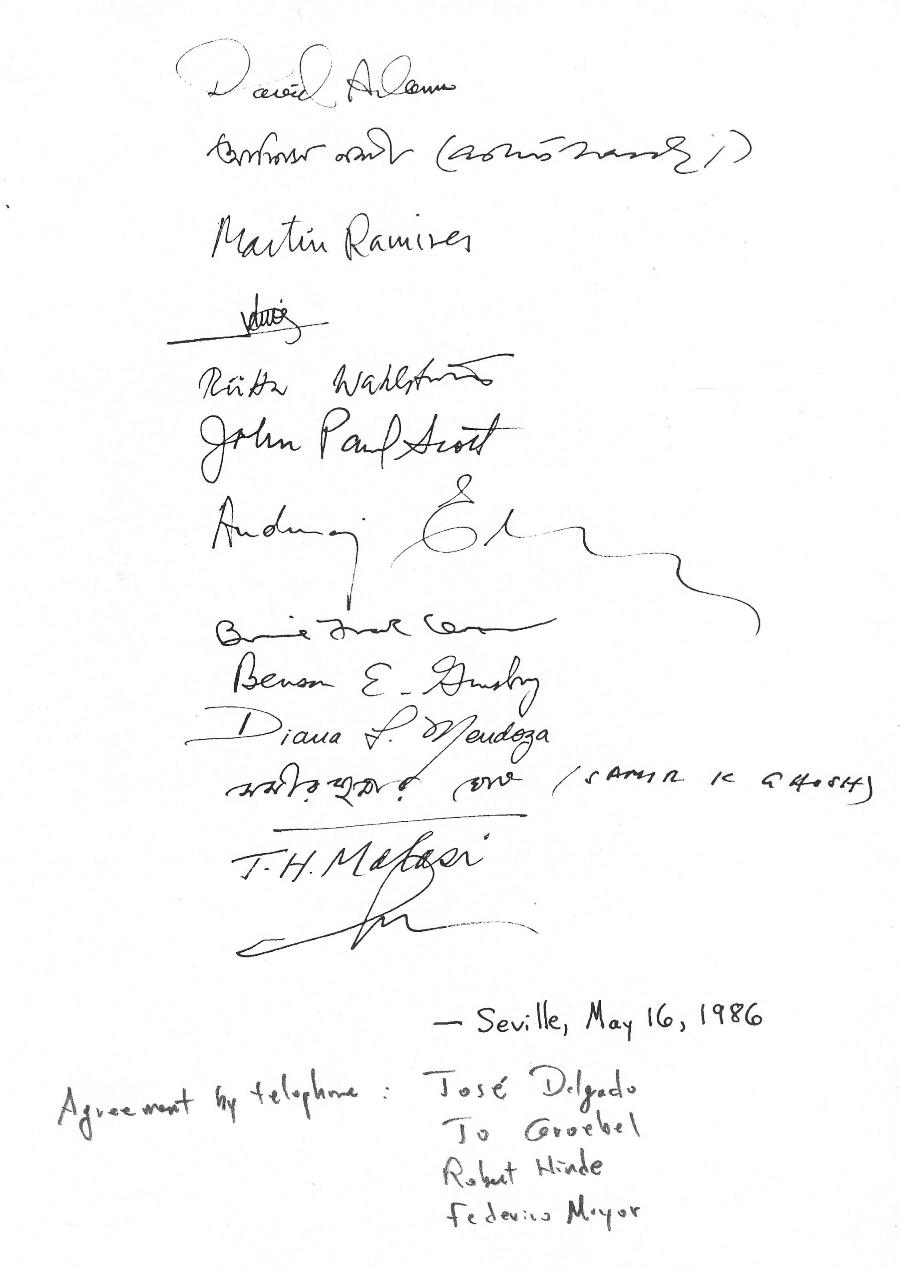 David Adams
আশিস নন্দী (Ashis Nandy)
Martin Ramirez
Riitta Wahlström
John Paul Scott
Andrzej
Bonnie Frank Carter
Benson E. Ginsburg
Diana L. Mendoza
সমীরকুমার ঘোষ (SAMIR K GHOSH)
T.H. Malasi
— Seville, May 16, 1986
Agreement by telephone : José Delgado
Jo Groebel
Robert Hinde
Federico Mayor